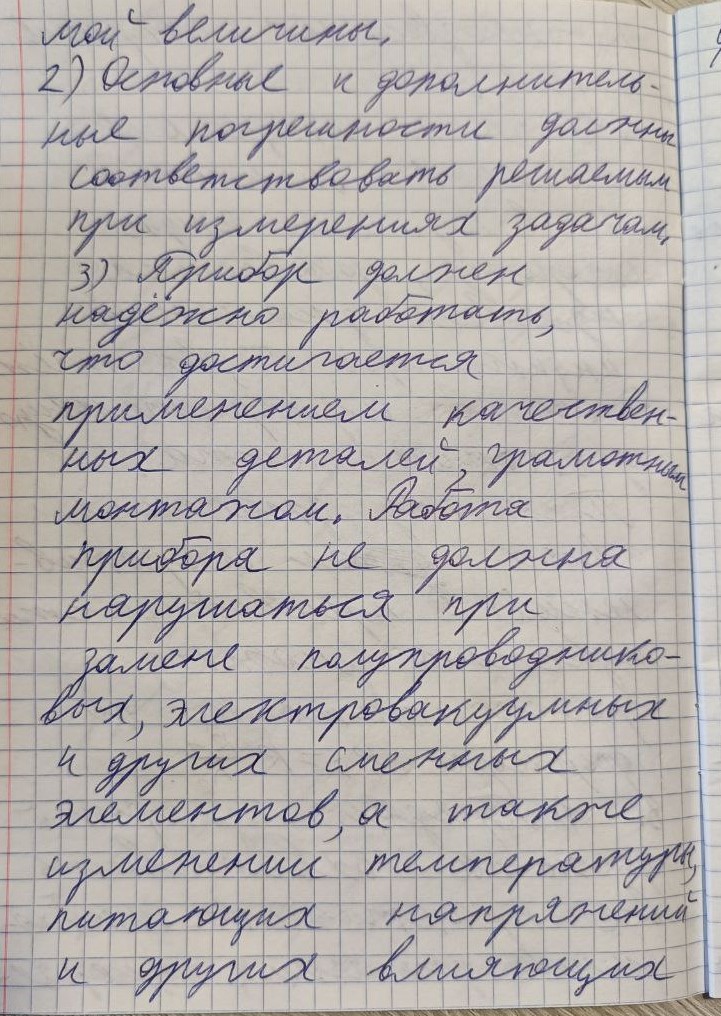 мой величины.
2) Основные и дополнитель-
ные погрешности должны
соответствовать решаемым
при измерениях задачам.
3) Прибор должен
надёжно работать,
что достигается
применением качествен-
ных деталей, грамотным
монтажом. Работа
прибора не должна
нарушаться при
замене полупроводнико-
вых, электровакуумных
и других сменных
элементов, а также
изменении температуры,
питающих напряжений
и других влияющих